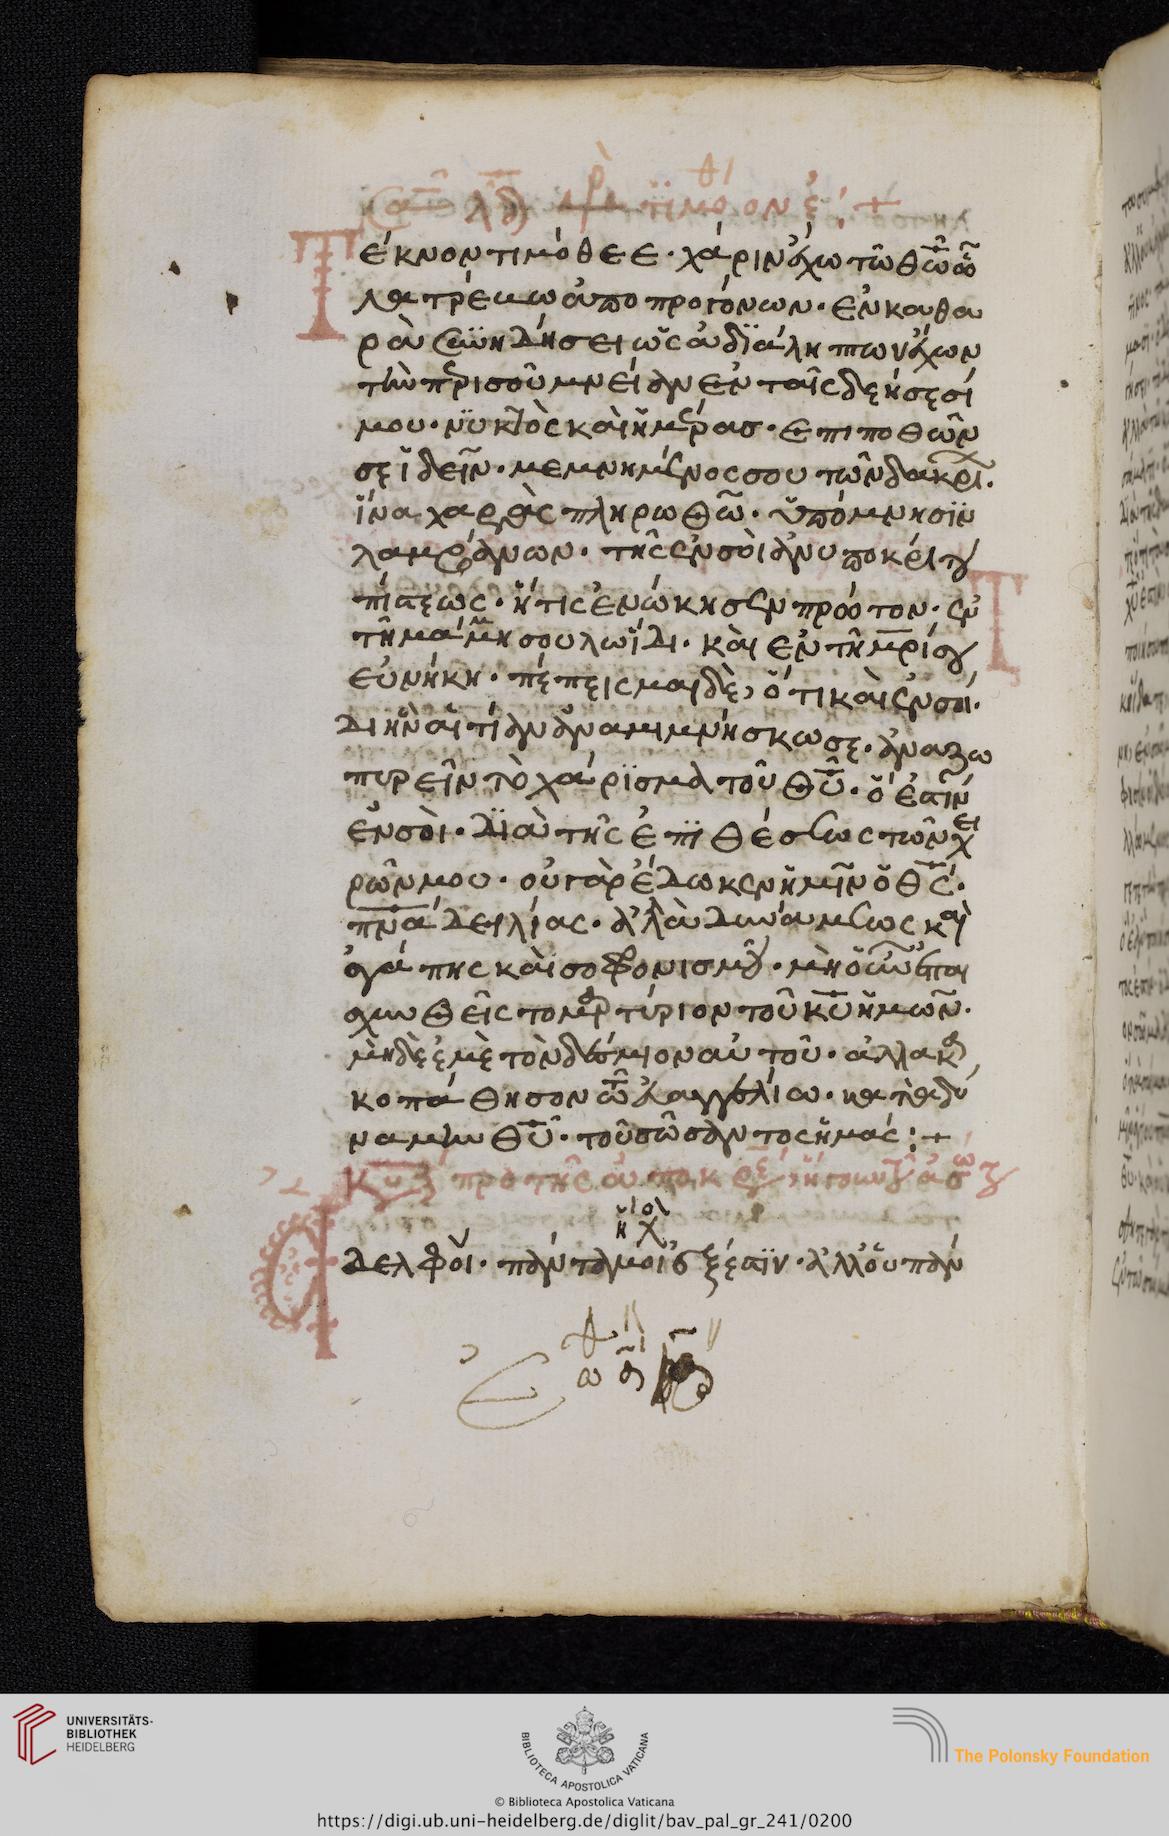 Τέκνον τιμόθεε· χάριν ἔχω τῶ θῶ ὧ
λατρέυω ἀπο προγόνων· ἐν καθα
ρὰ συνηδήσει ὡς ἀδϊάληπων ἔχων
τὴν πρι σοῦ μνείαν ἐν ταῖς δεήσεσί
μου· νϋκτὸς καὶ ἡμέρας· επιποθῶν
σε ἰδεῖν· μεμνημένος σου τῶν δακρι.
ἵνα χαρᾶς πληρωθῶ· ὑπόμνησϊν
λαμβάνων· τῆς ἐν σοὶ ἀνυποκρίτου
πίστεως· ἥτις ἐνώκησεν πρότον· ἐν
τῆ μάμμη σου λωΐδι· καὶ ἐν τῆ μρίσου
εὐνήκη· πέπεισμαι δὲ, ὅτι καὶ ἐν σοί·
δι ἣν αἰτίαν ἀναμιμνήσκω σε· ἀναζω
πυρεῖν τὸ χάρϊσμα τοῦ θῦ· ὅ ἐστὶν
ἐν σοὶ· δϊὰ τῆς ἐπϊθέσεως τῶν χει
ρῶν μου· οὐ γὰρ ἔδωκεν ἡμῖν ὁ θς·
πνα δειλίας· ἀλλὰ δυνάμεως καὶ
ἀγάπης καὶ σοφονισμοῦ· μὴ οὖν ἐπαι
σχυνθεῖς το μαρτύριον τοῦ κυ ἡμῶν·
μηδὲ ἐμὲ τὸν δέσμιον αὐτοῦ· ἀλλα κα
κοπάθησον τῶ εὐαγγελίω· κατὰ δύ
ναμιν θυ· τοῦ σώσαντος ἡμάς :+
Κυ πρὸ τῆς ἀποκρ
Αδελφοί· πάντα μοι ἔξεστϊν· ἀλλ ὀυ πάν